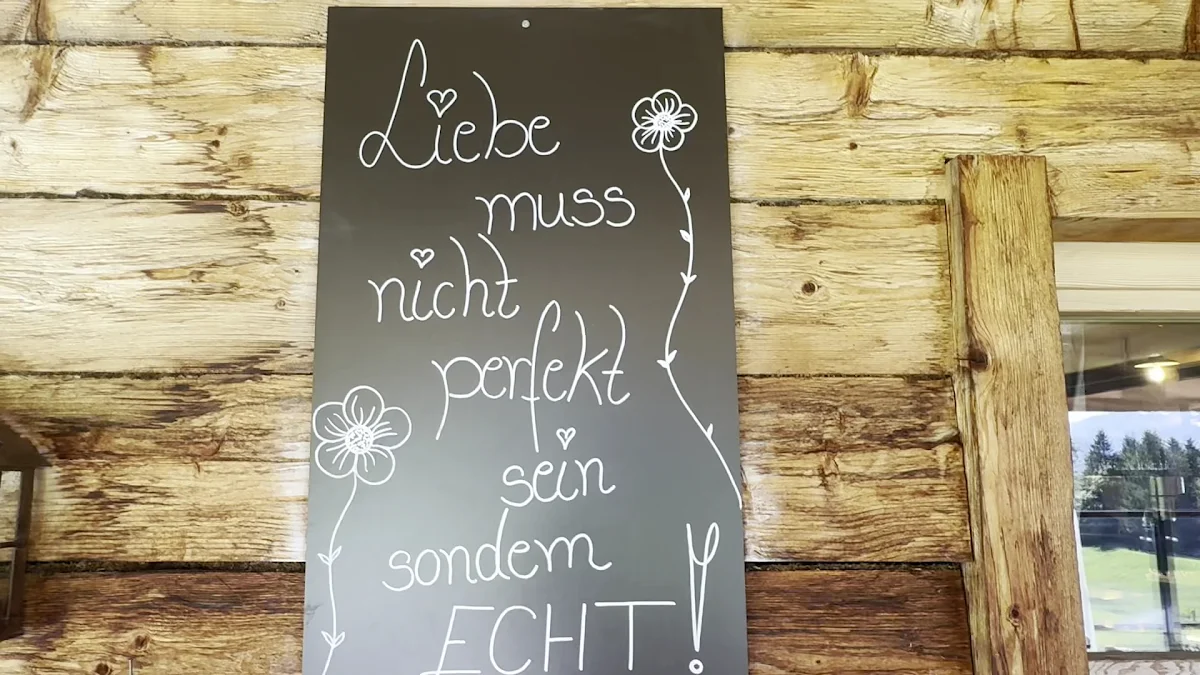 Liebe
muss
nicht
perfekt
sein
sondern
ECHT!